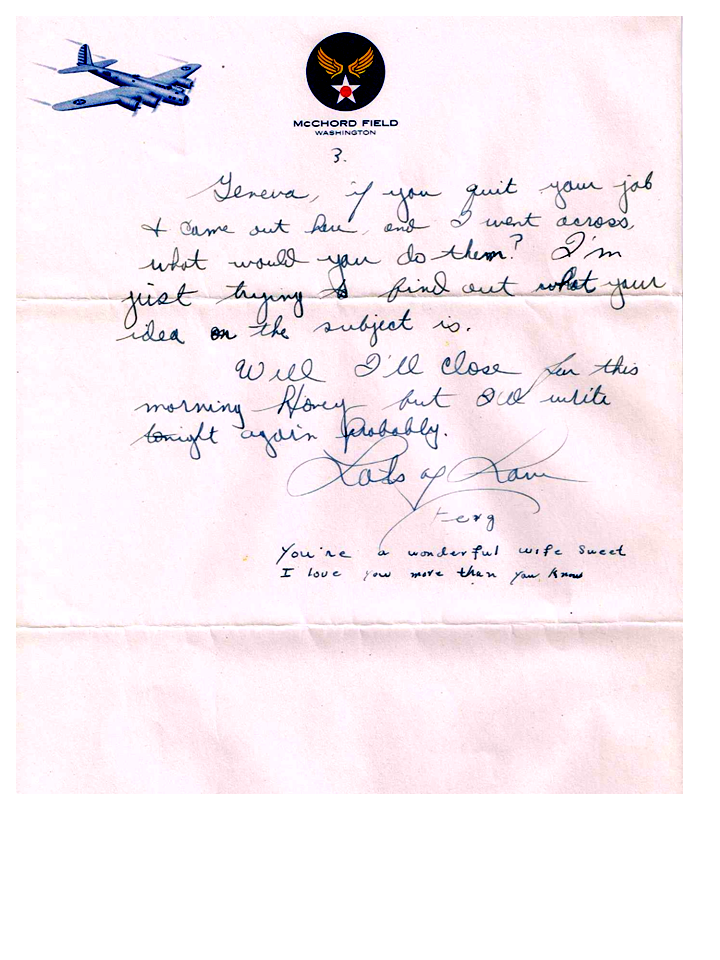 McCHORD FIELD
WASHINGTON
3.
Geneva, if you quit your job
& come out here, and I went across,
what would you do them? I'm
just trying to find out what your
idea on the subject is.
Well I'll close for this
morning Honey but I'll write
tonight again probably.
Lots of Love
Ferg
You're a wonderful wife sweet
I love you more than you know